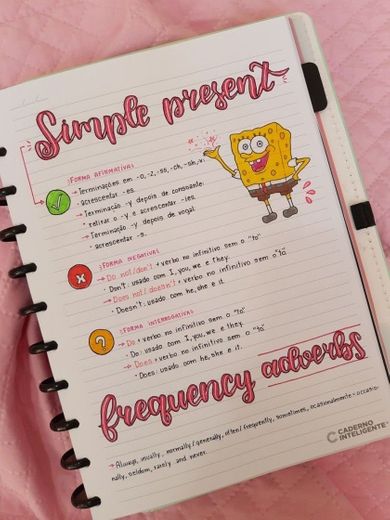 Simple present
:Forma afirmativas
→ Terminações em -o, -z, -ss, -ch, -sh, -x:
• acrescentar -es.
→ Terminação -y depois de consoante:
• retirar o -y e acrescentar -ies.
→ Terminação -y depois de vogal:
• acrescentar -s.
:Forma negativas
→ Do not/don't + verbo no infinitivo sem o "to"
• Don't: usado com I, you, we e they.
→ Does not/doesn't + verbo no infinitivo sem o "to".
• Doesn't: usado com he, she e it.
?
:Forma interrogativas
→ Do + verbo no infinitivo sem o "to"
• Do: usado com I, you, we e they.
→ Does + verbo no infinitivo sem o "to"
• Does: usado com he, she e it.
frequency adverbs
→ Always, usually, normally/generally, often/frequently, sometimes, ocasionalmente - occasio-
nally, seldom, rarely and never.
CADERNO
INTELIGENTE